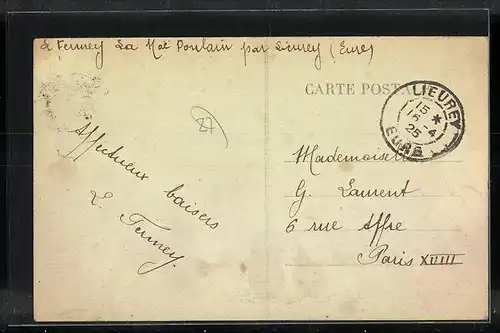 L. Fermey La Mot Poulain par Lieurey (Eure)
CARTE POSTALE
LIEUREY
15 *
16 - 4
25
EURE
Affectueux baisers
L. Fermey.
Mademoiselle
G. Laurent
6 rue Affre
Paris XVIII